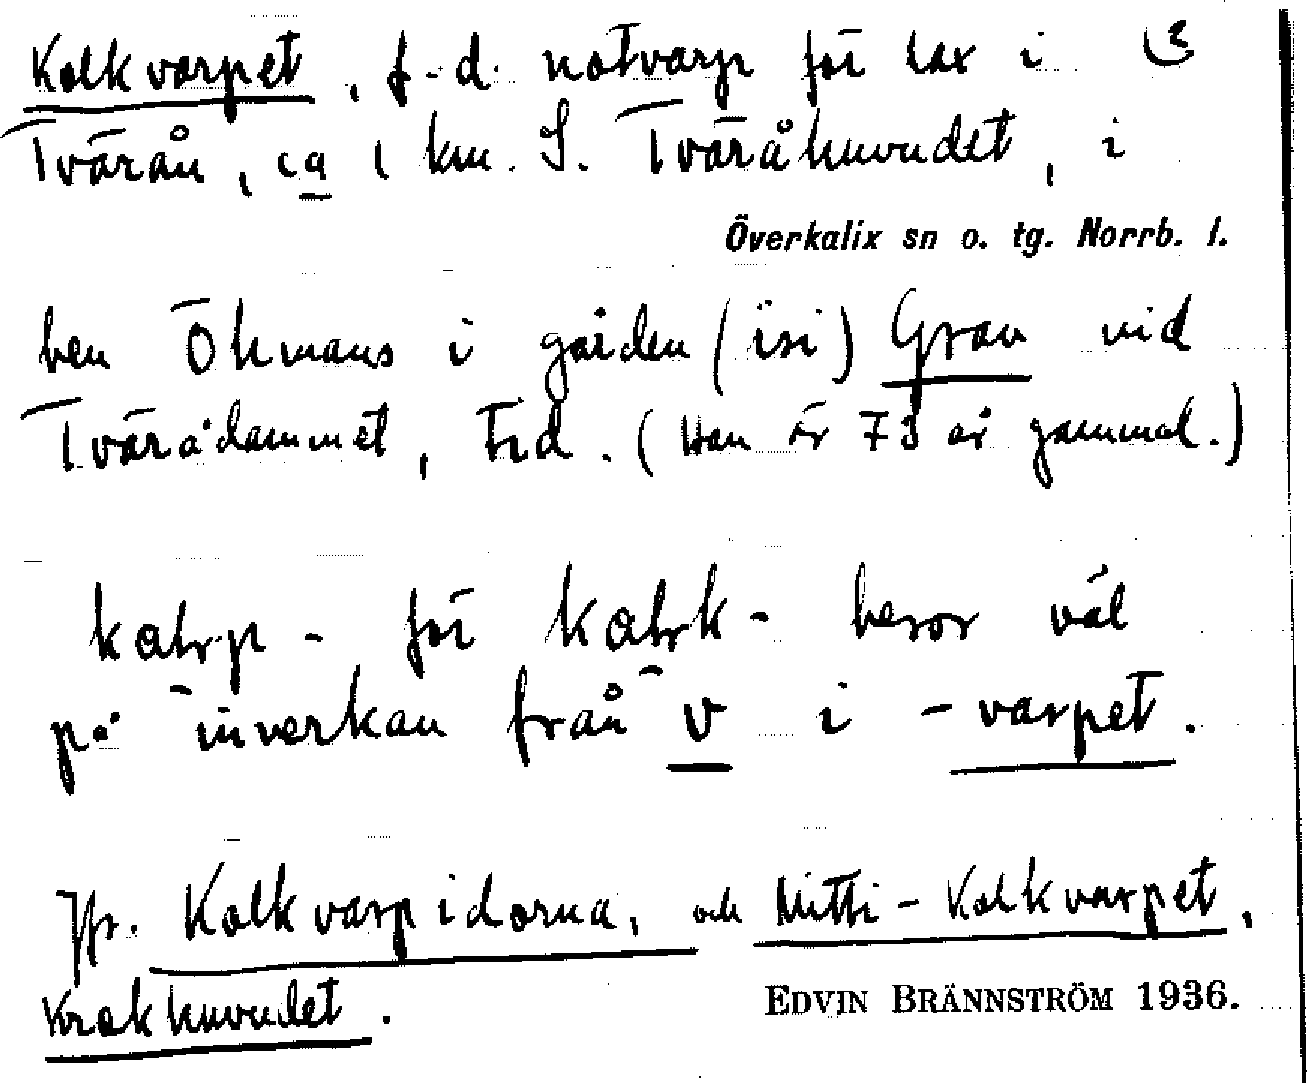 Kolkvarpet, f.d. notvarp för lax i
Tvärån, ca 1 km. S. Tväråhuvudet, i
Överkalix sn o. tg. Norrb. l.
ben Öhmans i gården (isi) Gran vid
Tvärådammet, Frd. (Han är 73 år gammal.)
kalrp - för kalrk - beror väl
på inverkan från v i -varpet.
Jfr. Kolkvarpidorna, och Mitti-Kolkvarpet,
Krokhuvudet.
EDVIN BRÄNNSTRÖM 1936.